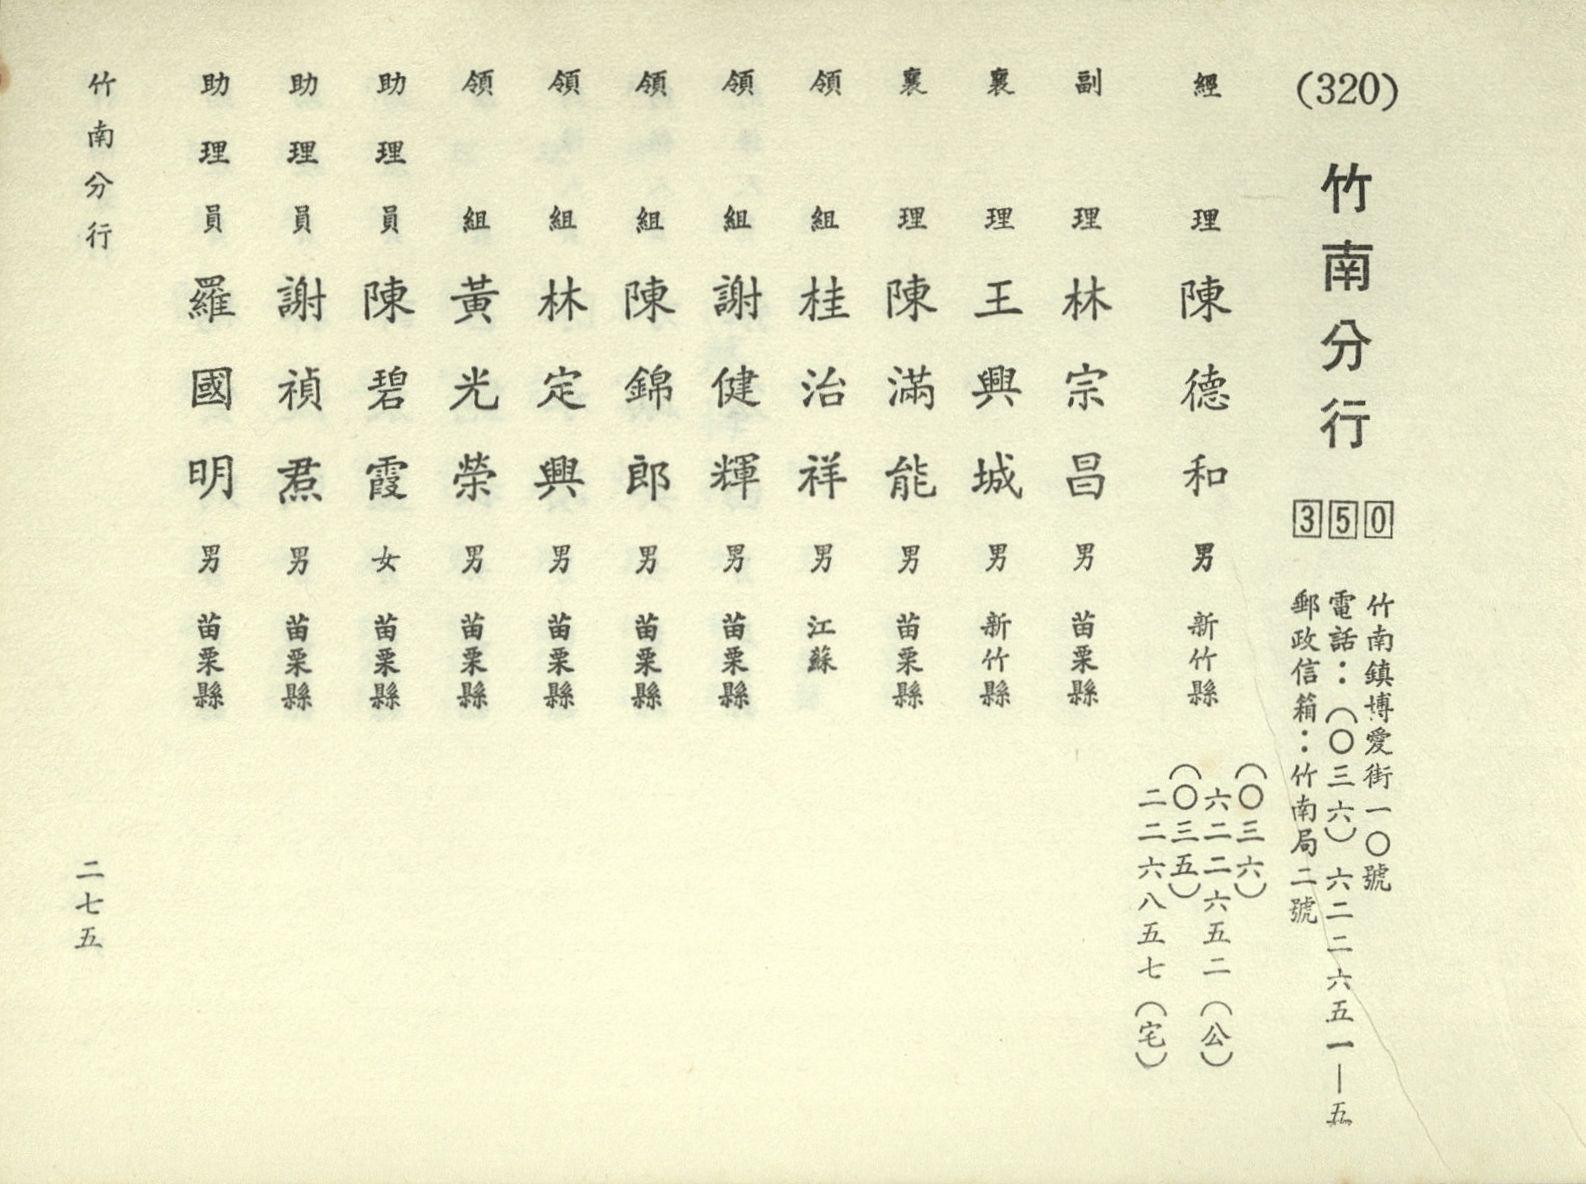 (320) 竹南分行 350
竹南鎮博愛街一〇號
電話：(〇三六)六二二六五一—五
郵政信箱：竹南局二號
經理 陳德和 男 新竹縣
(〇三六)
六二二六五二(公)
(〇三五)
二二六八五七(宅)
副理 林宗昌 男 苗栗縣
襄理 王興城 男 新竹縣
襄理 陳滿能 男 苗栗縣
領組 桂治祥 男 江蘇
領組 謝健輝 男 苗栗縣
領組 陳錦郎 男 苗栗縣
領組 林定興 男 苗栗縣
領組 黃光榮 男 苗栗縣
助理員 陳碧霞 女 苗栗縣
助理員 謝禎焄 男 苗栗縣
助理員 羅國明 男 苗栗縣
竹南分行
二七五